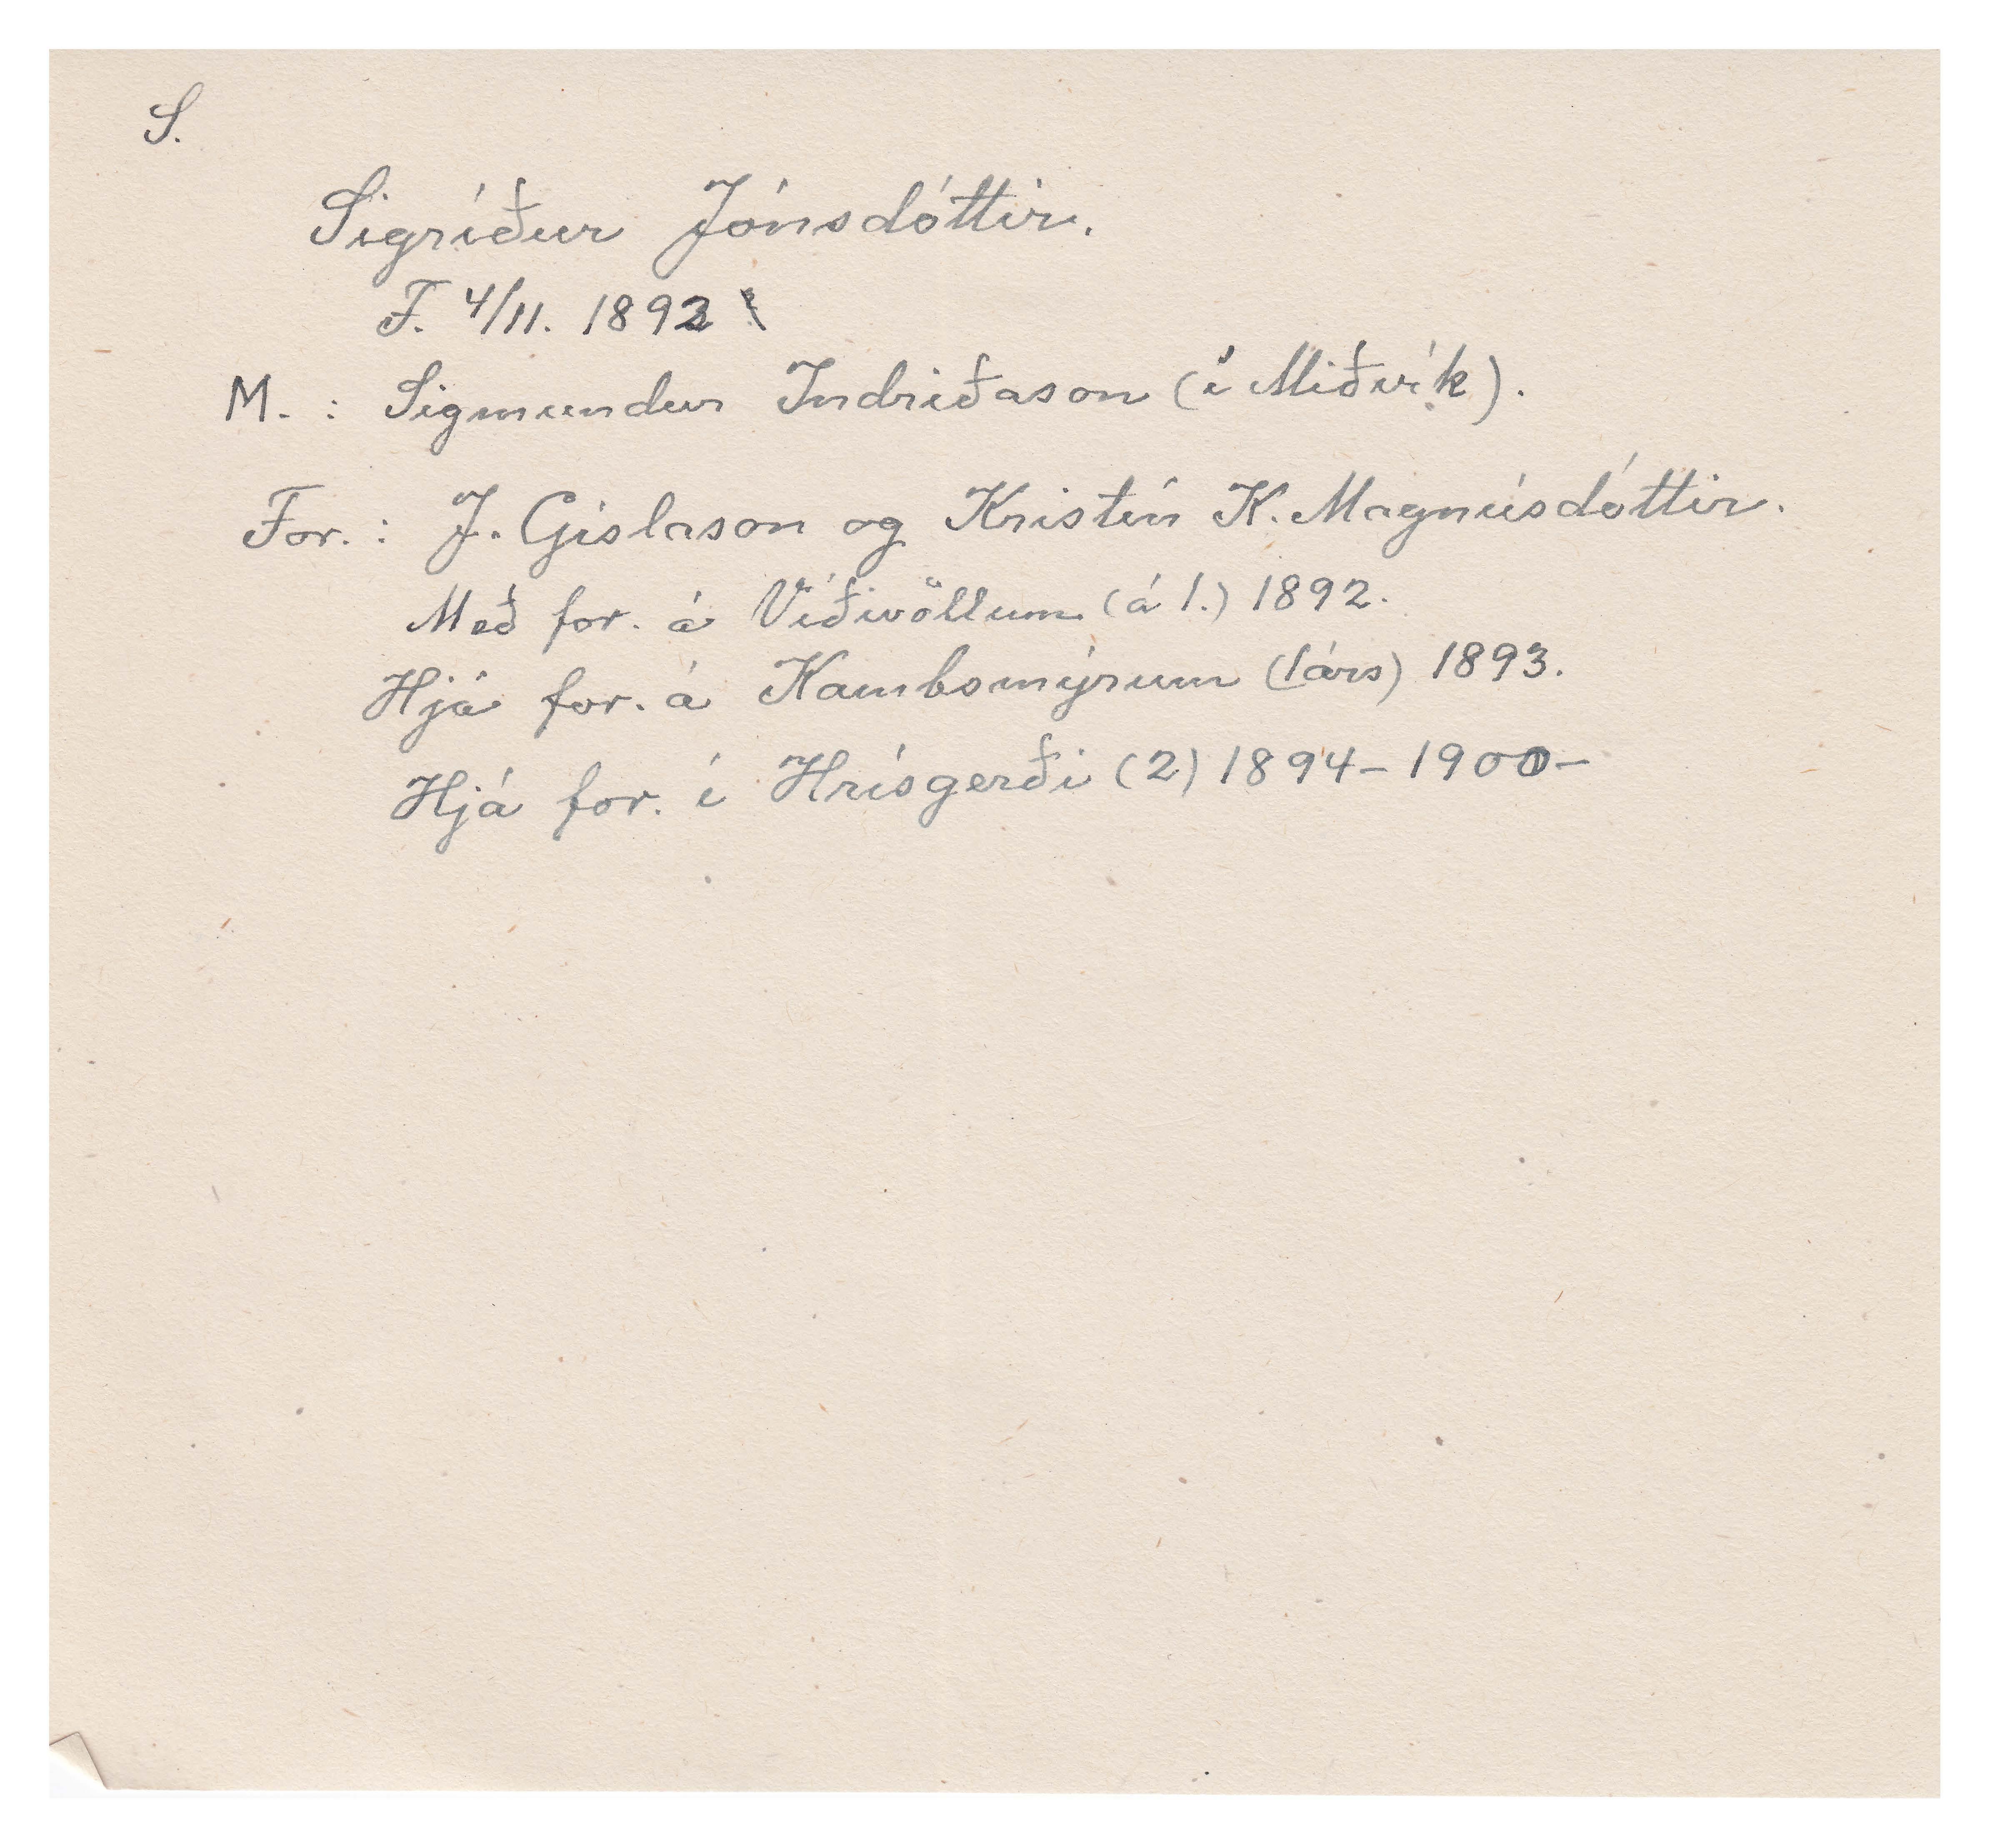 S.
Sigríður Jónsdóttir.
F. 4/11. 1892
M. : Sigmundur Indriðason (í Miðvík).
For. : J. Gíslason og Kristín K. Magnúsdóttir.
Með for. á Víðivöllum (á 1.) 1892.
Hjá for. á Kambsmýrum (1árs) 1893.
Hjá for. í Hrísgerði (2) 1894 - 1900 -